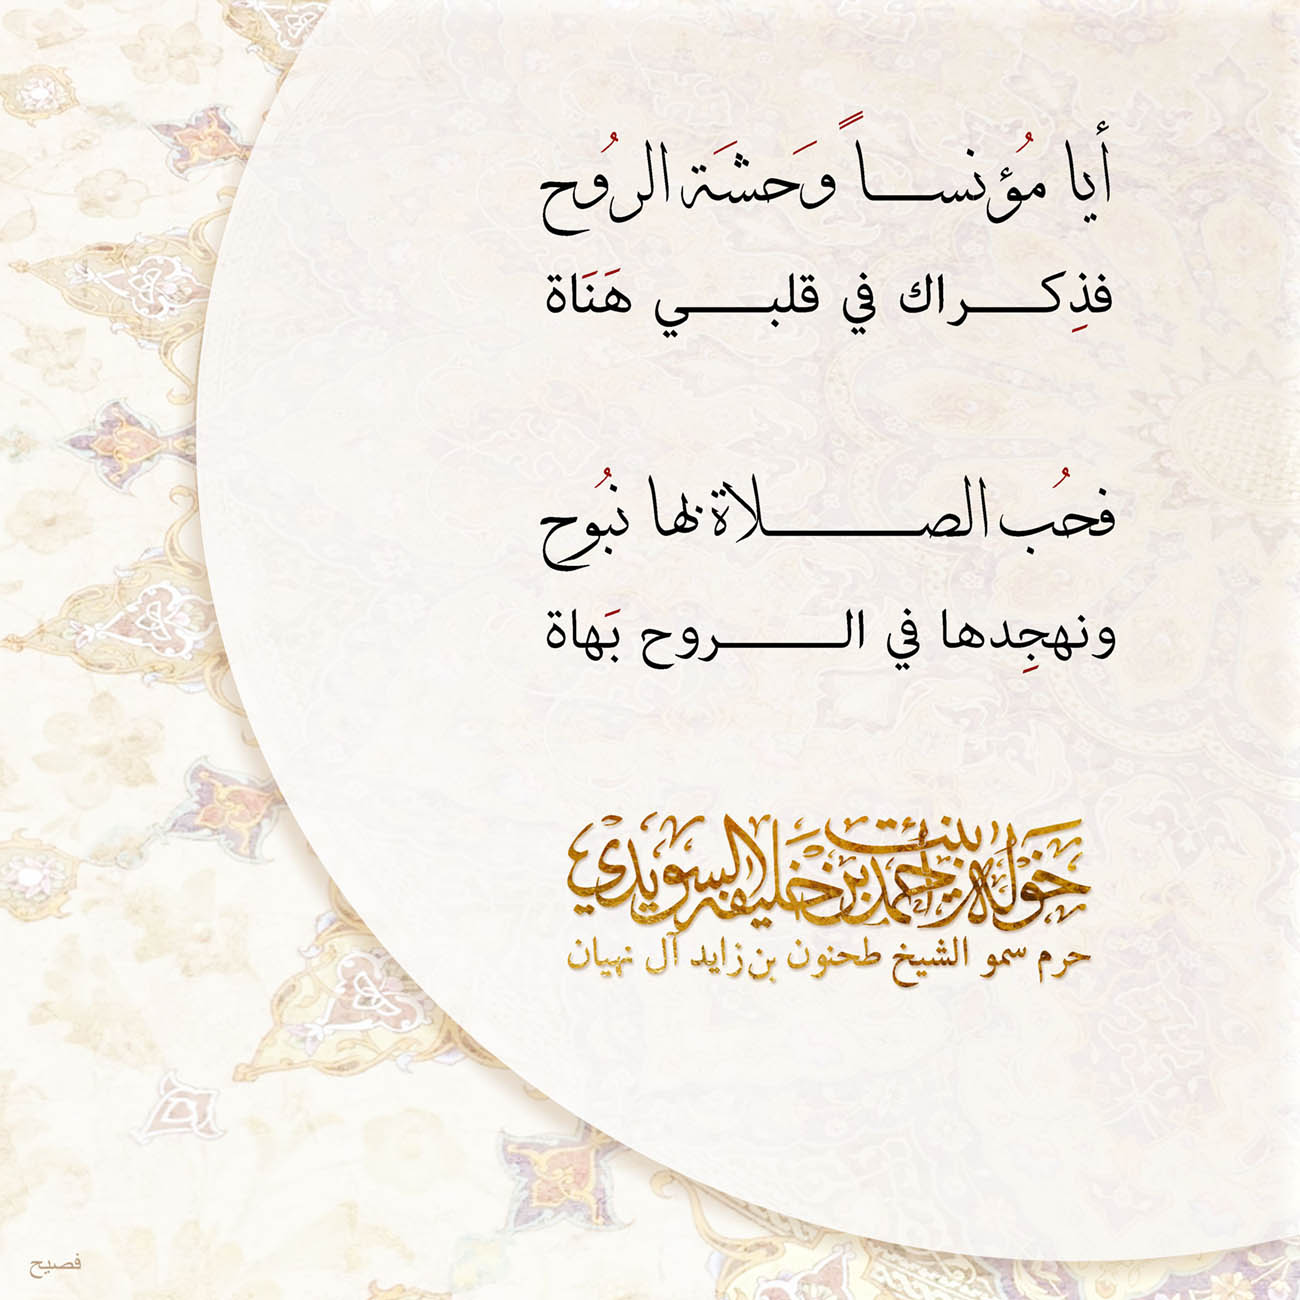 أيا مُؤنساً وَحشَة الرُوح
فذِكراك في قلبي هَنَاة
فحُب الصلاة لها نبُوح
ونهجِدها في الروح بَهاة
خولة بنت أحمد بن خليفة السويدي
حرم سمو الشيخ طحنون بن زايد آل نهيان
فصيح